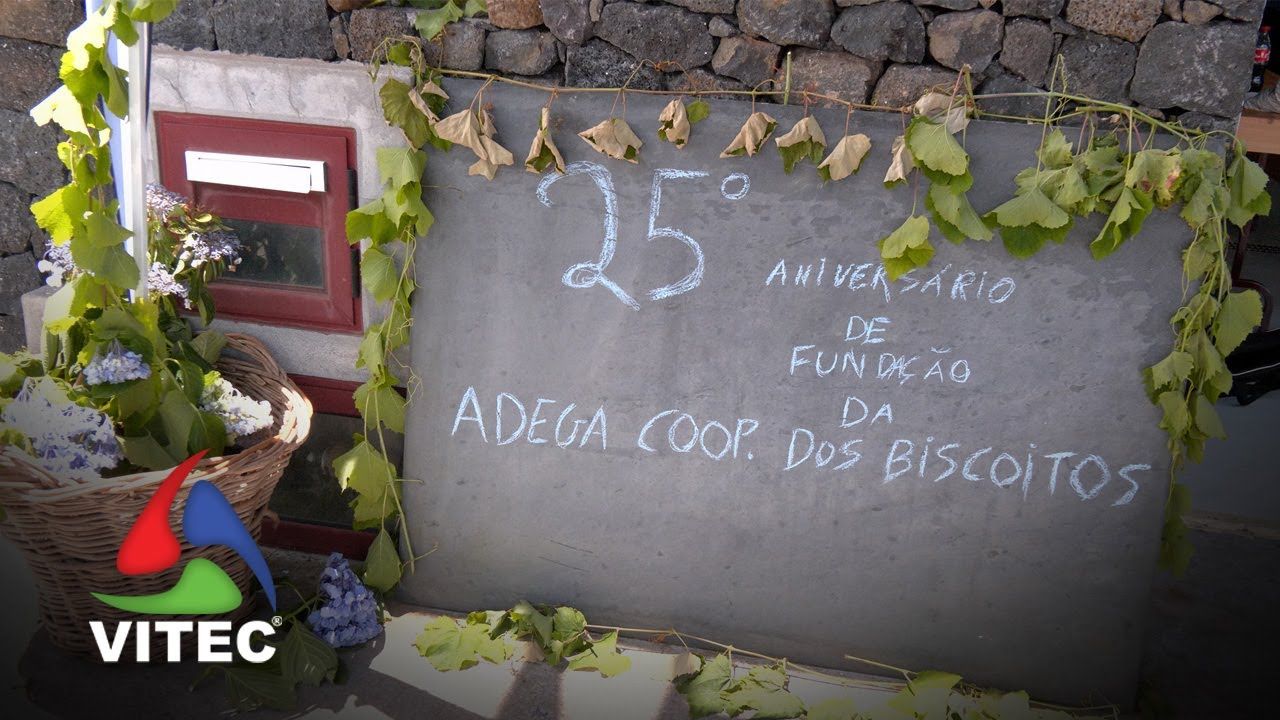 25º
ANIVERSÁRIO
DE
FUNDAÇÃO
DA
ADEGA COOP. DOS BISCOITOS
VITEC®